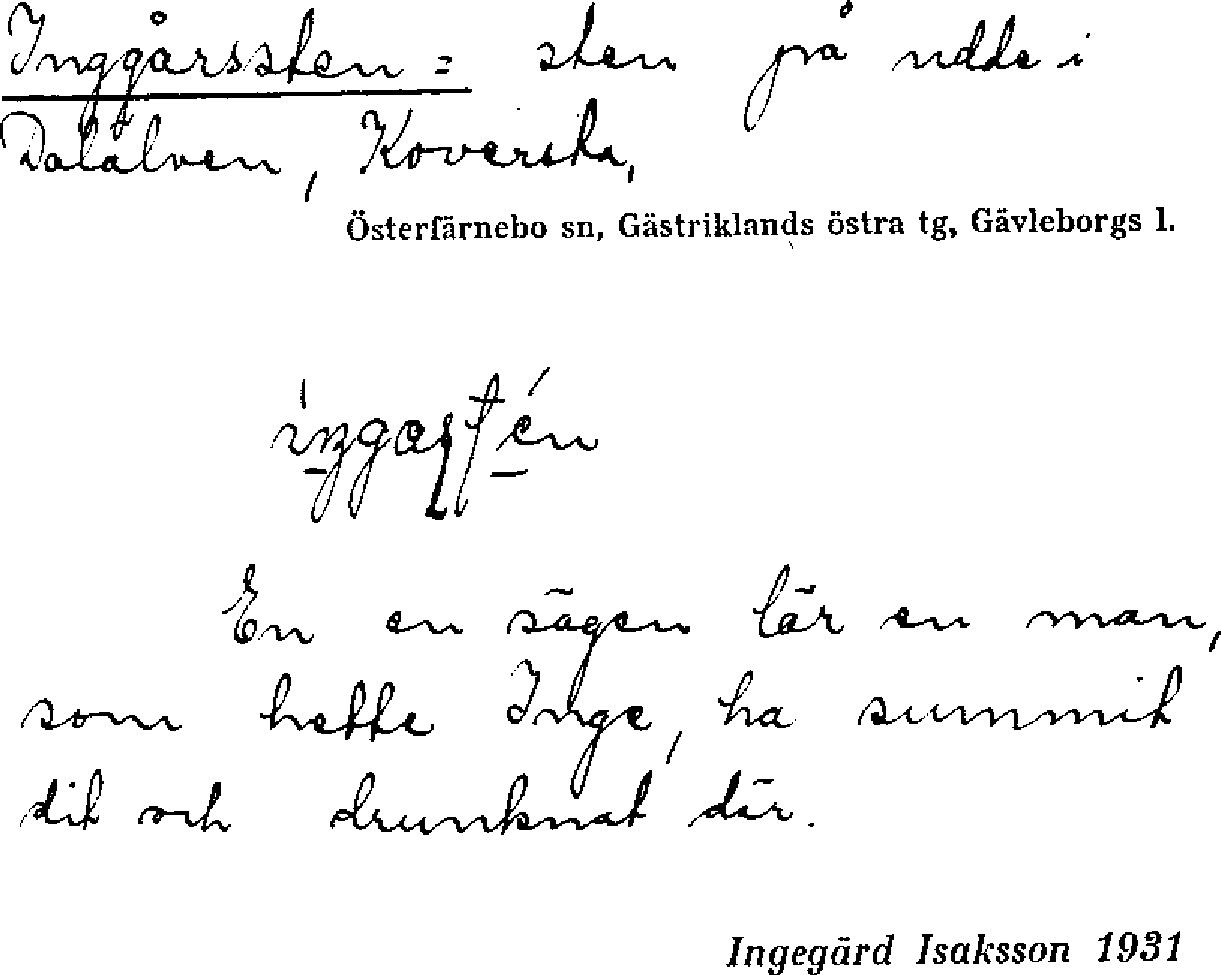 Inggårssten = sten på udde i
Dalälven, Koverska,
Österfärnebo sn, Gästriklands östra tg, Gävleborgs l.
En en sägen lär en man,
som hette Inge, ha summit
dit och drunknat där.
Ingegärd Isaksson 1931